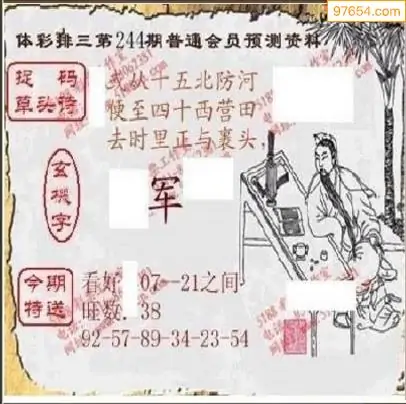 97654.com
体彩排三第244期普通会员预测资料
捉码
草头诗
从十五北防河
便至四十西营田
去时里正与裹头,
玄機字
军
今期
特送
看好 07--21之间
旺数:38
92-57-89-34-23-54